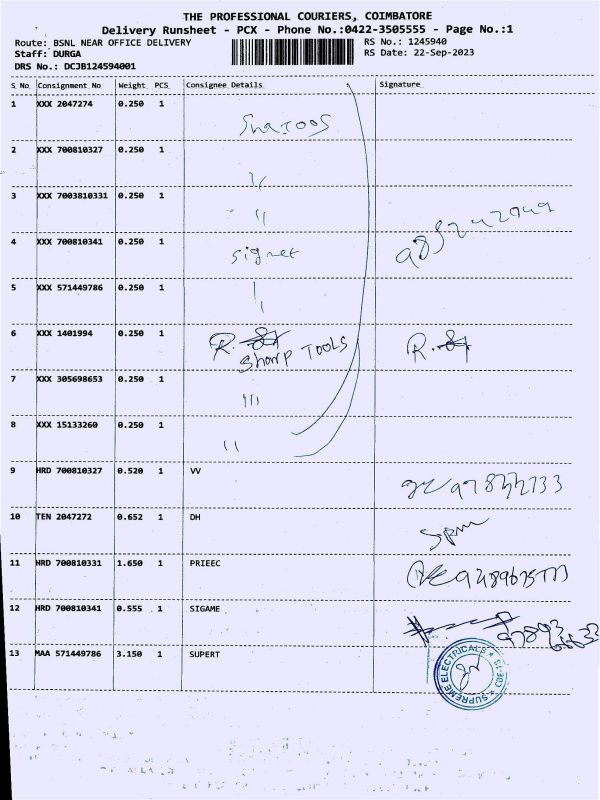 THE PROFESSIONAL COURIERS, COIMBATORE
Delivery Runsheet - PCX - Phone No.:0422-3505555 - Page No.:1
Route: BSNL NEAR OFFICE DELIVERY RS No.: 1245940
Staff: DURGA RS Date: 22-Sep-2023
DRS No.: DCJB124594001
S No Consignment No Weight PCS Consignee Details Signature
1 XXX 2047274 0.250 1
2 XXX 700810327 0.250 1
3 XXX 7003810331 0.250 1
4 XXX 700810341 0.250 1 signet
5 XXX 571449786 0.250 1
6 XXX 1401994 0.250 1 R.
Sharp Tools R.
7 XXX 305698653 0.250 1
8 XXX 15133260 0.250 1
9 HRD 700810327 0.520 1 VV
10 TEN 2047272 0.652 1 DH
11 HRD 700810331 1.650 1 PRIEEC
12 HRD 700810341 0.555 1 SIGAME
13 MAA 571449786 3.150 1 SUPERT
SUPREME ELECTRICALS